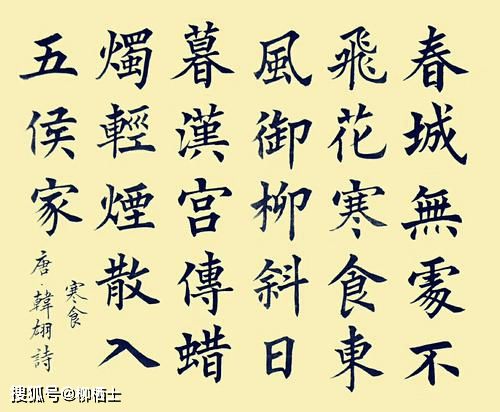 春城無處不
飛花寒食東
風御柳斜日
暮漢宮傳蜡
燭輕煙散入
五侯家
寒食
唐·韓翃詩
搜狐号@柳栖士